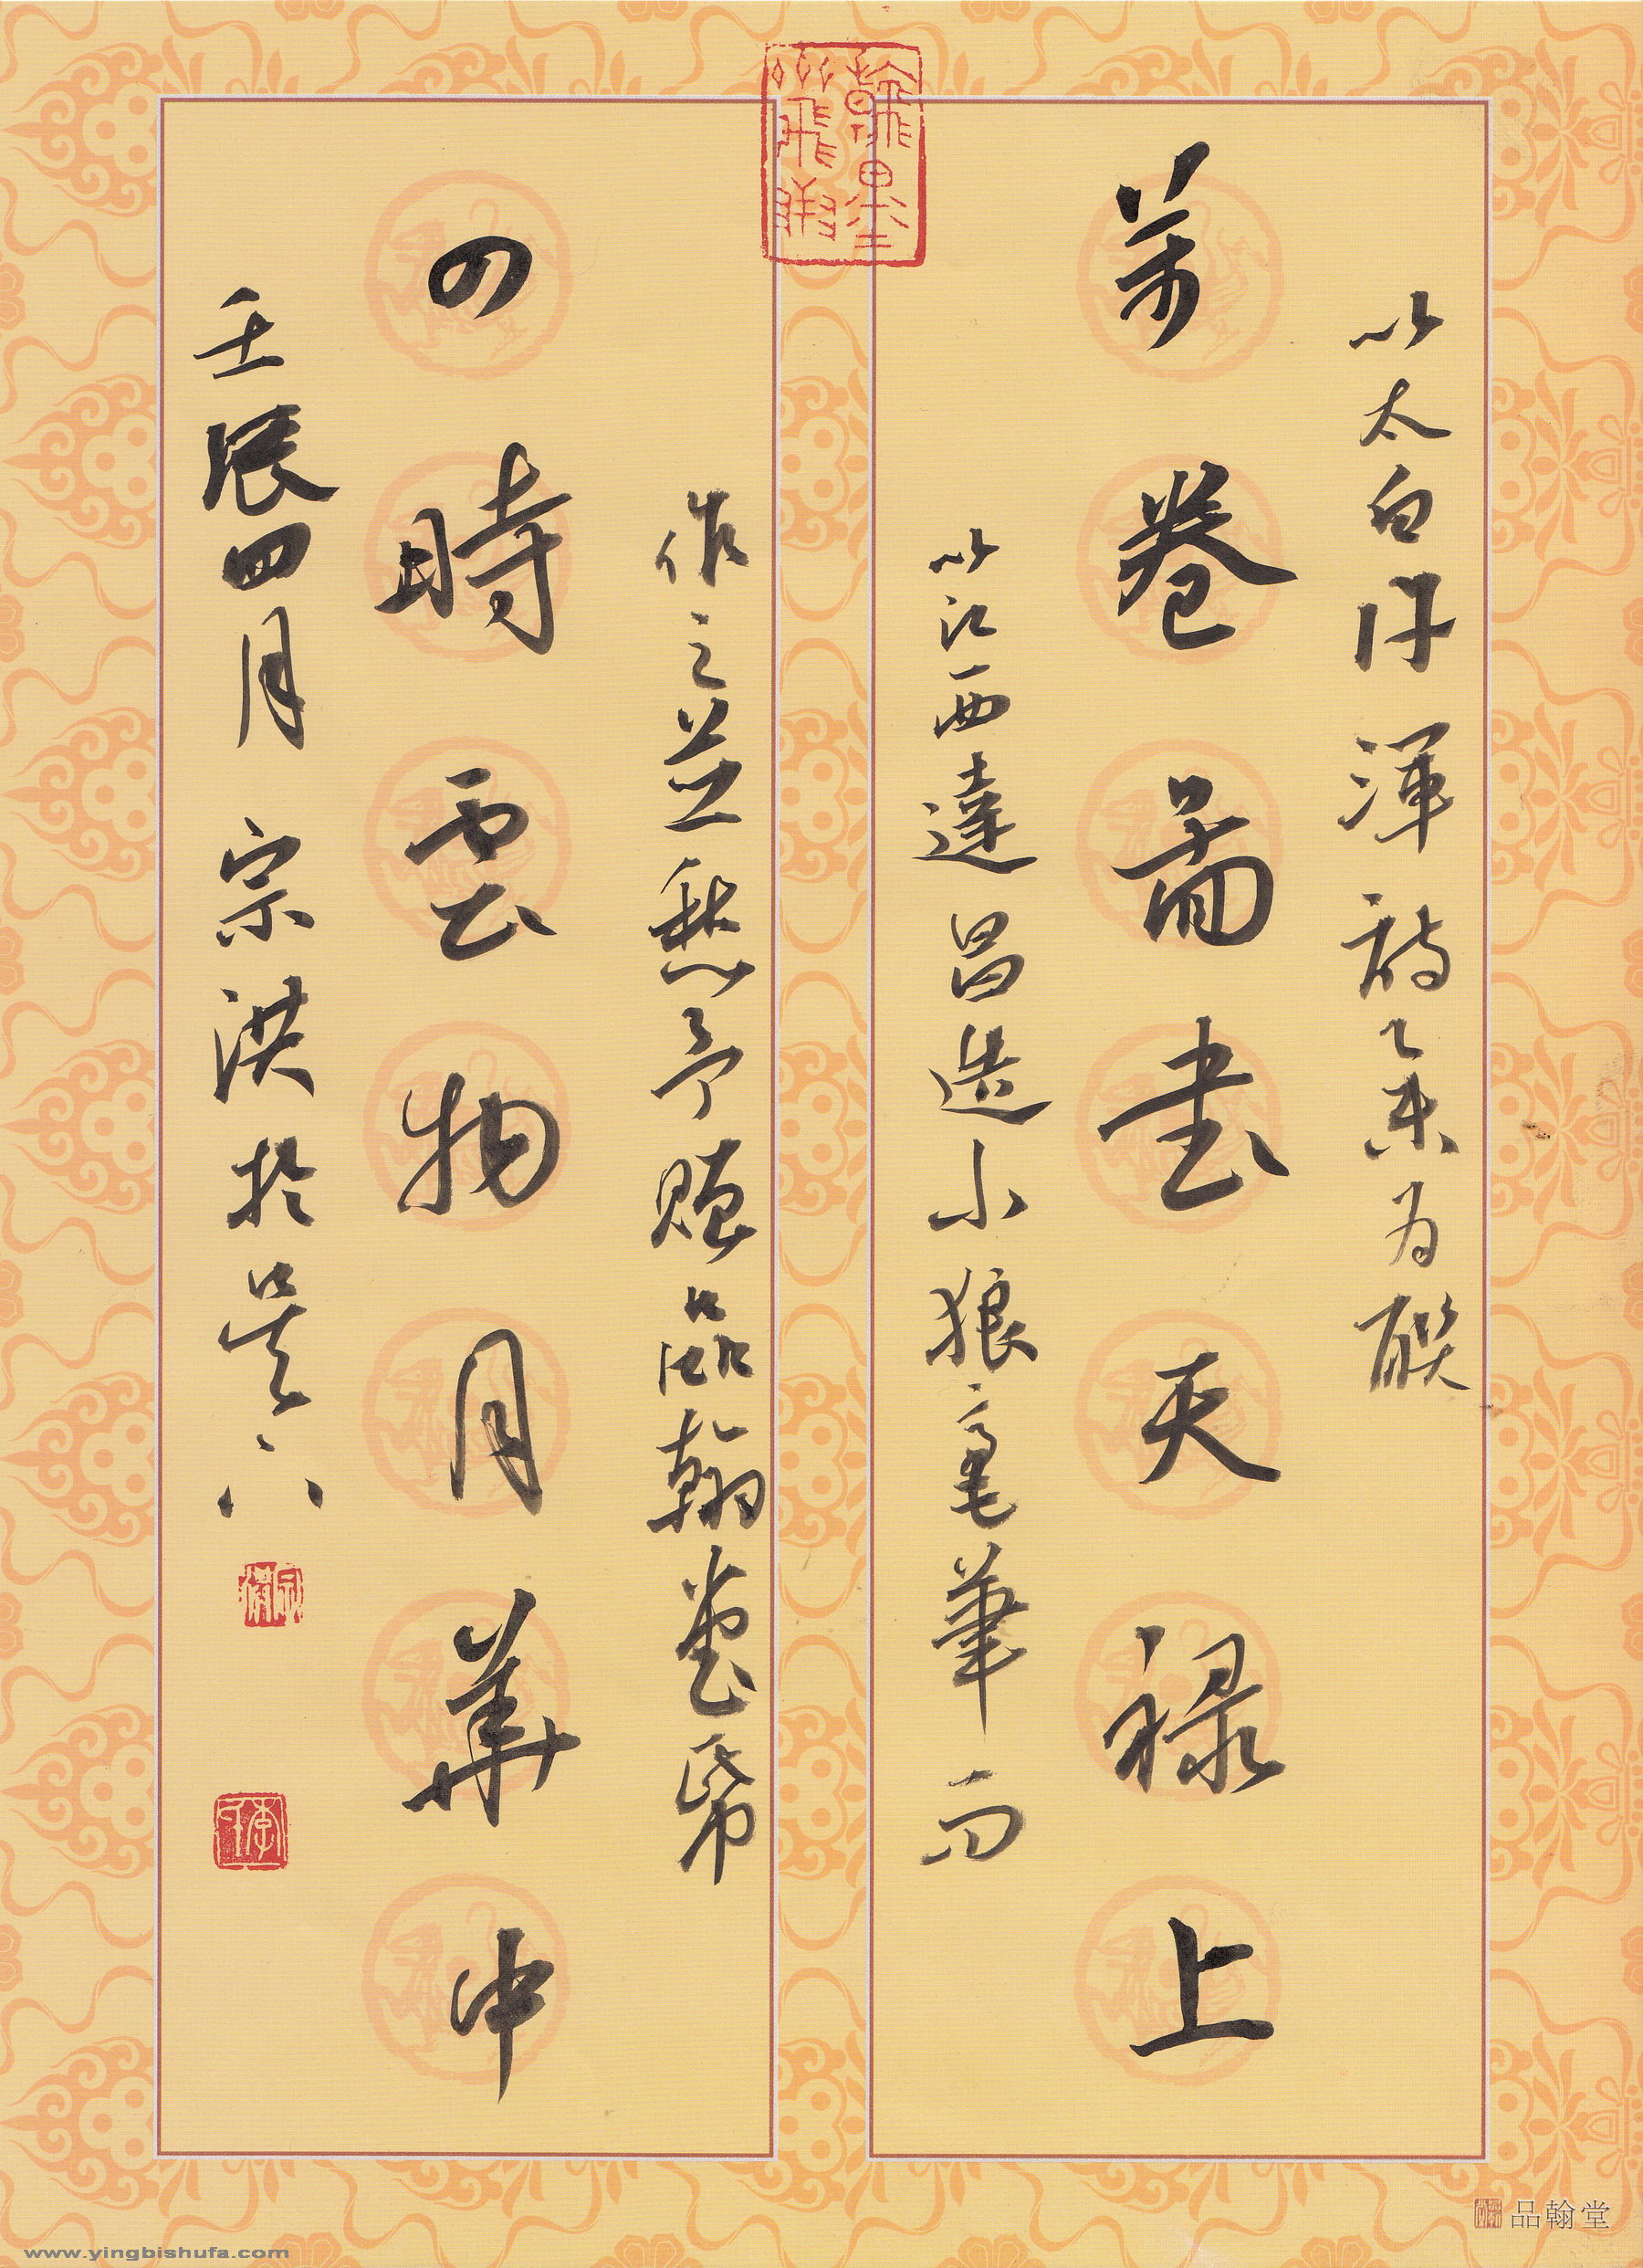 以太白許渾詩集為聯
萬卷圖書天禄上
以江西達昌造小狼毫筆而
作之並 予 品翰堂帋
四時雲物月華中
壬辰四月宗洪於吴下
翰墨
品翰堂
www.yingbishufa.com